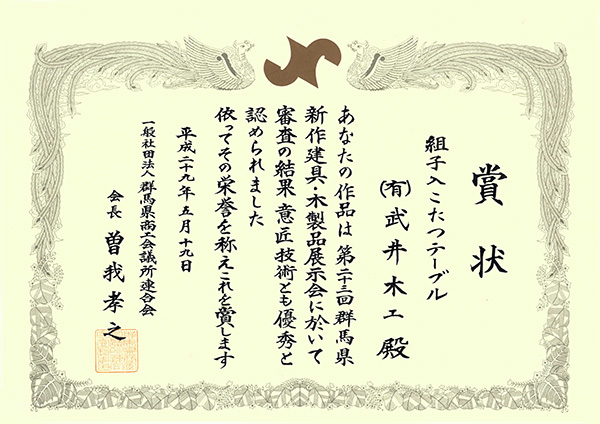 賞状
組子入こたつテーブル
(有)武井木工殿
あなたの作品は第二十三回群馬県
新作建具・木製品展示会に於いて
審査の結果意匠技術とも優秀と
認められました
依ってその栄誉を称えこれを賞します
平成二十九年五月十九日
一般社団法人群馬県商工会議所連合会
会長 曽我孝之